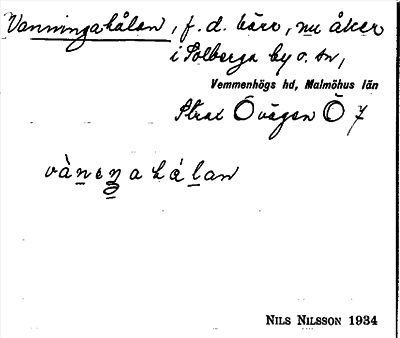 Vanningahålan, f. d. kärr, nu åker
i Solberga by o. sn,
Vemmenhögs hd, Malmöhus län
Strax Ö vägen Ö 7
vàneŋahálan
NILS NILSSON 1934